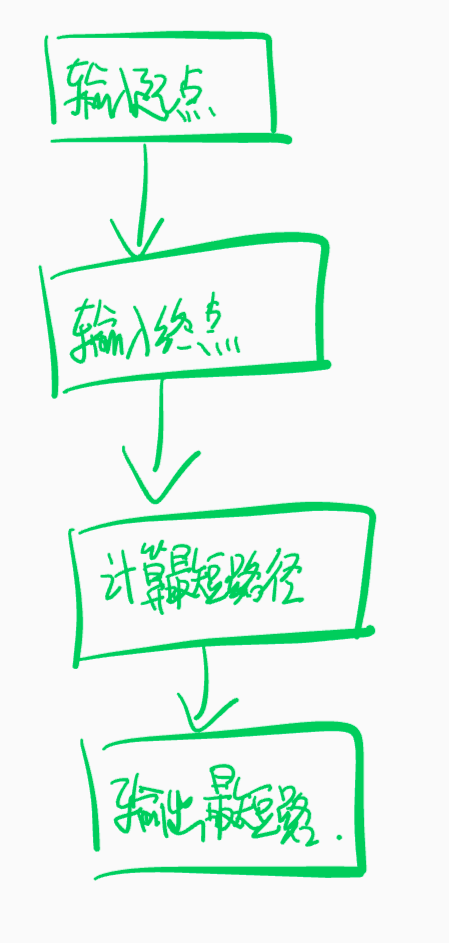 输入起点
输入终点
计算最短路径
输出最短路.